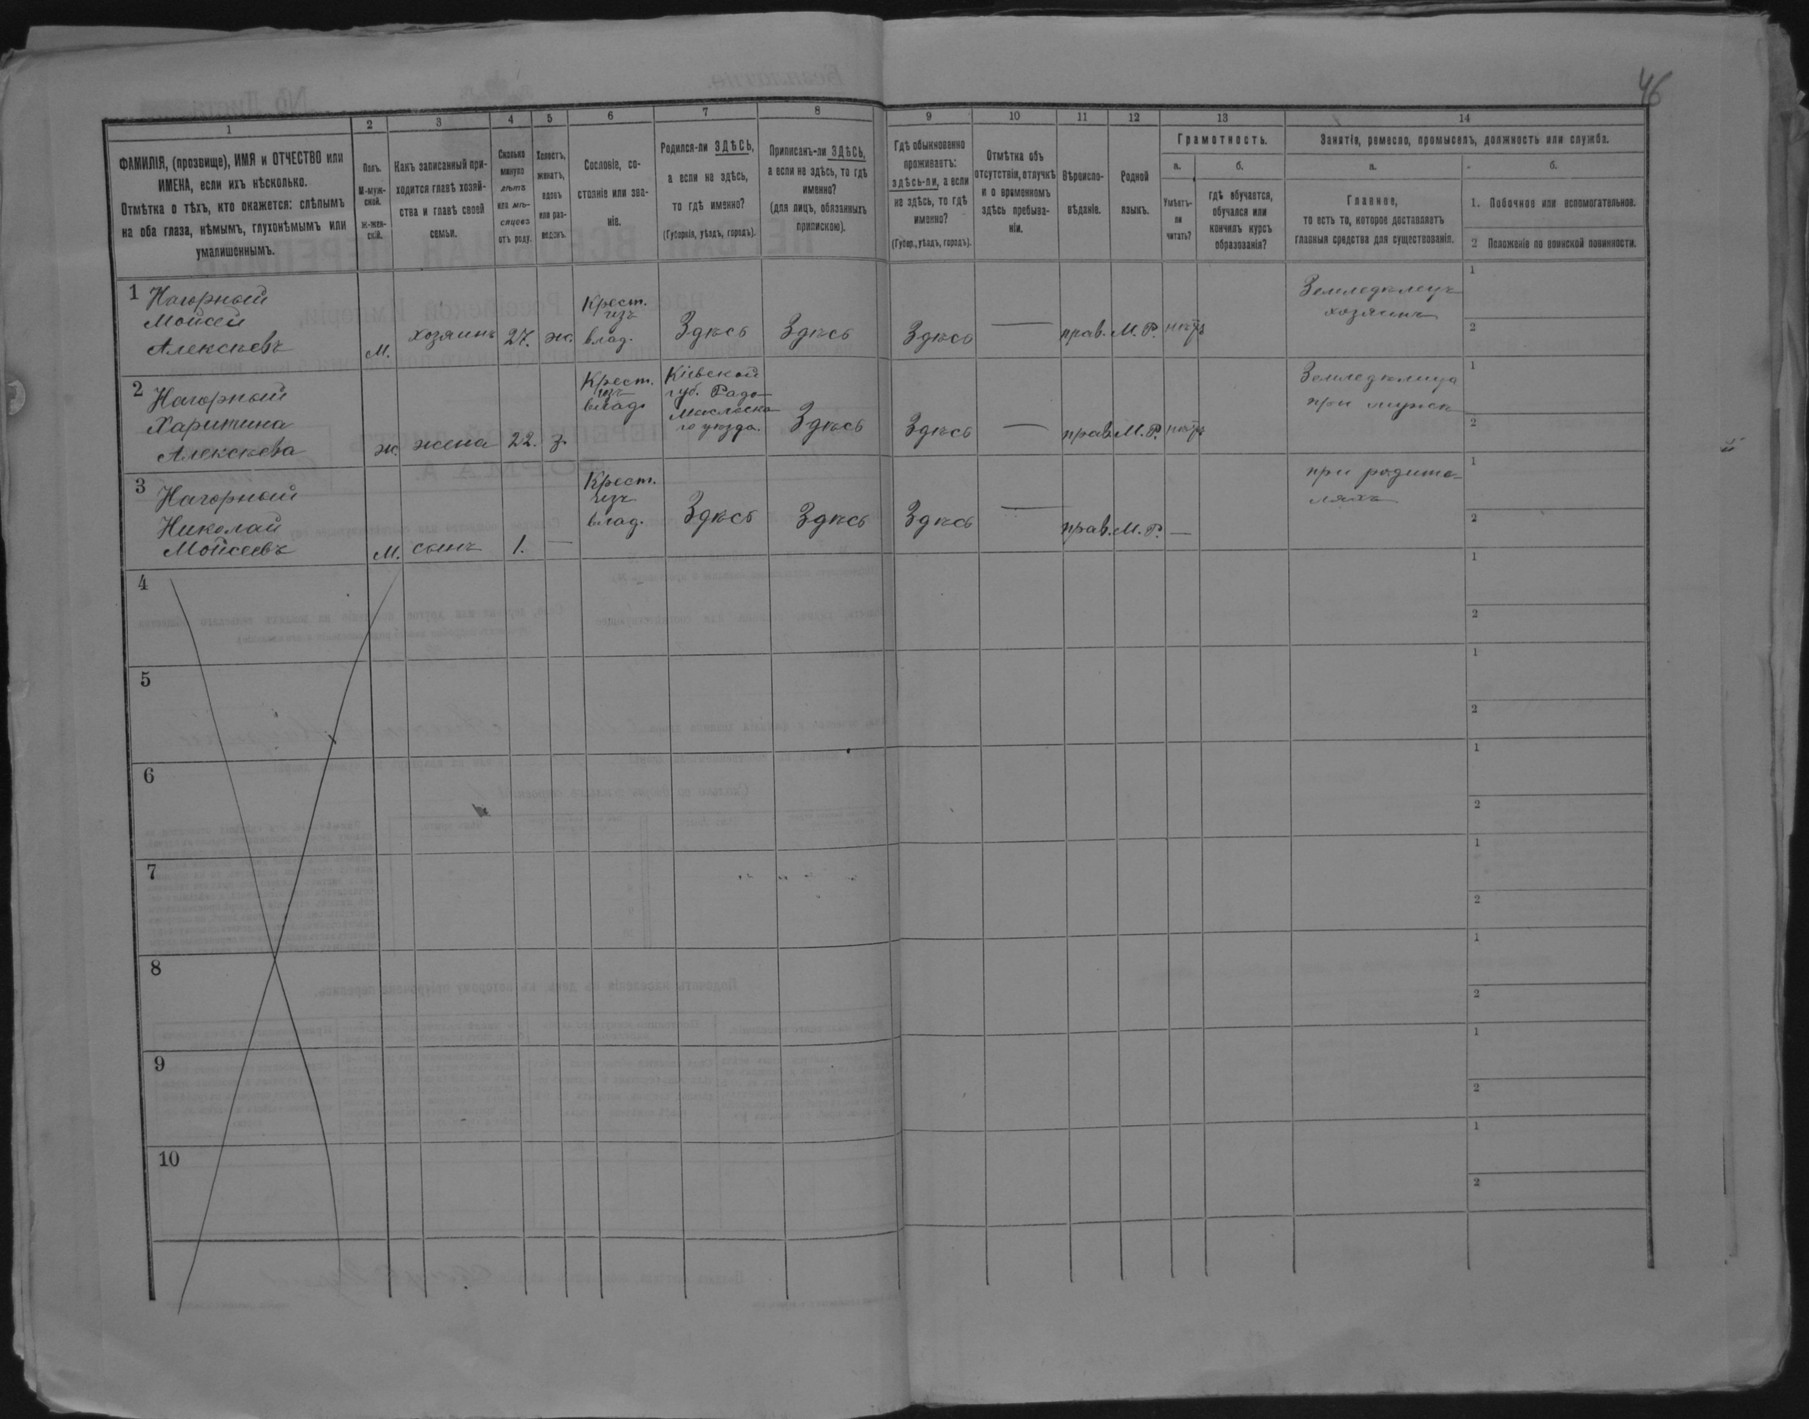 46
1
2
3
4
5
6
7
8
9
10
11
12
13
14
ФАМИЛІЯ, (прозвище), ИМЯ и ОТЧЕСТВО или
ИМЕНА, если ихъ нѣсколько.
Отмѣтка о тѣхъ, кто окажется: слѣпымъ
на оба глаза, нѣмымъ, глухонѣмымъ или
умалишеннымъ.
Полъ.
М-муж-
ской.
Ж-жен-
скій.
Какъ записанный при-
ходится главѣ хозяй-
ства и главѣ своей
семьи.
Сколько
минуло
лѣтъ
или мѣ-
сяцевъ
отъ роду.
Холостъ,
женатъ,
вдовъ
или раз-
веденъ.
Сословіе, со-
стояніе или зва-
ніе.
Родился-ли ЗДѢСЬ,
а если не здѣсь,
то гдѣ именно?
(Губернія, уѣздъ, городъ).
Приписанъ-ли ЗДѢСЬ,
а если не здѣсь, то гдѣ
именно?
(для лицъ, обязанныхъ
припискою).
Гдѣ обыкновенно
проживаетъ:
здѣсь-ли, а если
не здѣсь, то гдѣ
именно?
(Губер., уѣздъ, городъ).
Отмѣтка объ
отсутствіи, отлучкѣ
и о временномъ
здѣсь пребыва-
ніи.
Вѣроиспо-
вѣданіе.
Родной
языкъ.
Грамотность.
а.
Умѣетъ-
ли
читать?
б.
гдѣ обучается,
обучался или
кончилъ курсъ
образованія?
Занятіе, ремесло, промыселъ, должность или служба.
а.
Главное,
то есть то, которое доставляетъ
главныя средства для существованія.
б.
1. Побочное или вспомогательное.
2 Положеніе по воинской повинности.
1 Нагорный
Мойсей
Алексѣевъ
М.
хозяинъ
27.
ж.
Крест.
изъ
влад.
Здѣсь
Здѣсь
Здѣсь
—
прав.
М. Р.
нѣтъ
Земледѣлецъ
хозяинъ
1
2
2 Нагорный
Харитина
Алексѣева
ж.
жена
22.
з.
Крест.
изъ
влад.
Кіевской
губ. Радо-
мысльска-
го уѣзда.
Здѣсь
Здѣсь
—
прав.
М. Р.
нѣтъ
Земледѣлица
при мужѣ
1
2
3 Нагорный
Николай
Мойсеевъ
М.
сынъ
1.
—
Крест.
изъ
влад.
Здѣсь
Здѣсь
Здѣсь
—
прав.
М. Р.
—
при родите-
ляхъ
1
2
4
1
2
5
1
2
6
1
2
7
1
2
8
1
2
9
1
2
10
1
2